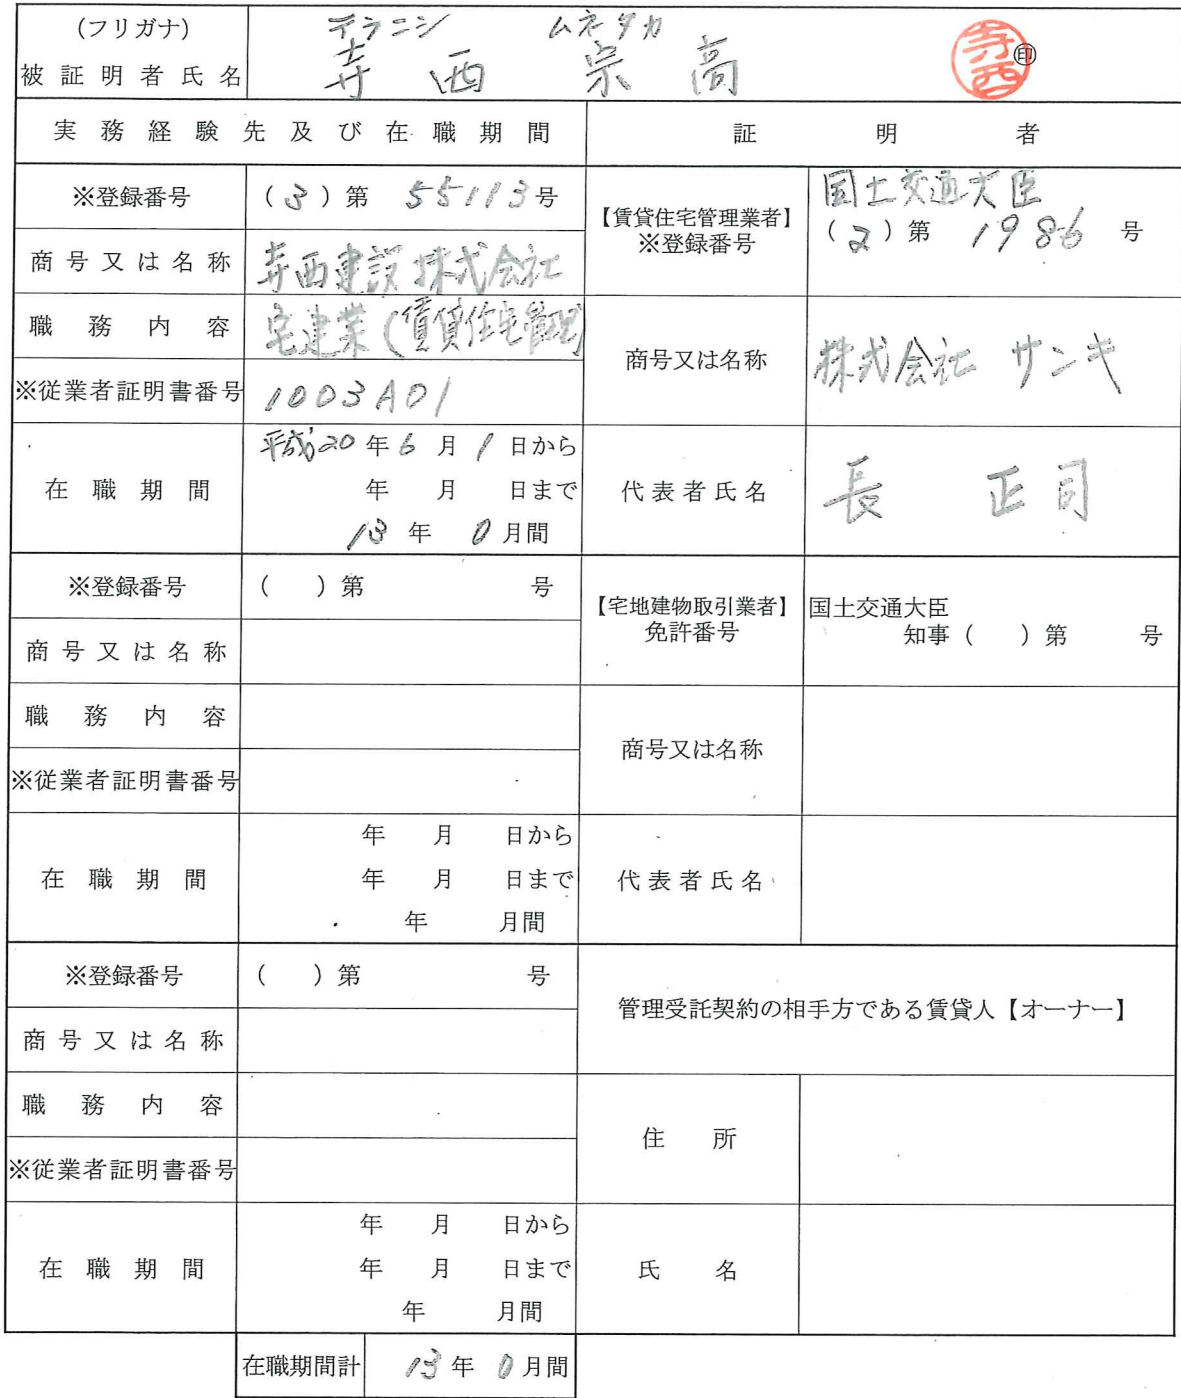 (フリガナ) テラニシ ムネタカ
被証明者氏名 寺西 宗高 寺西 ㊞
実務経験先及び在職期間 証明者
※登録番号 (3)第 55113号
商号又は名称 寺西建設株式会社
職務内容 宅建業(賃貸住宅管理)
※従業者証明書番号 1003A01
在職期間
平成20年6月1日から
年 月 日まで
13年 0月間
【賃貸住宅管理業者】
※登録番号
国土交通大臣
(2)第 1986 号
商号又は名称 株式会社 サンキ
代表者氏名 長 正司
※登録番号 ( )第 号
商号又は名称
職務内容
※従業者証明書番号
在職期間
年 月 日から
年 月 日まで
年 月間
【宅地建物取引業者】
免許番号
国土交通大臣
知事( )第 号
商号又は名称
代表者氏名
※登録番号 ( )第 号
商号又は名称
職務内容
※従業者証明書番号
在職期間
年 月 日から
年 月 日まで
年 月間
管理受託契約の相手方である賃貸人【オーナー】
住所
氏名
在職期間計 13年 0月間